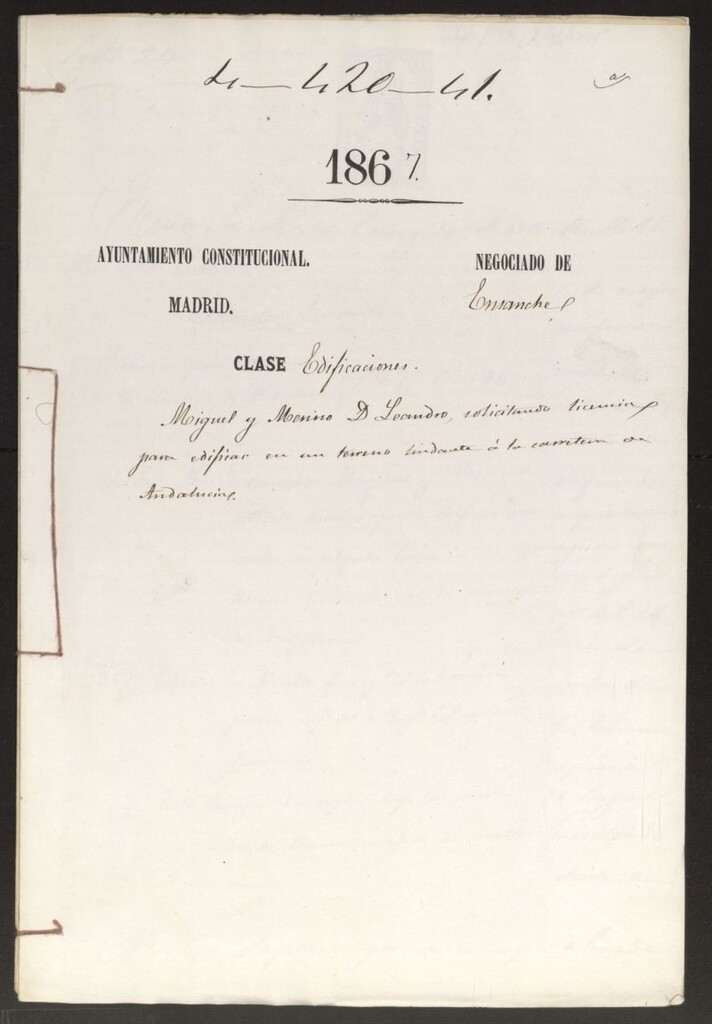 4-420-41.
1867.
AYUNTAMIENTO CONSTITUCIONAL.
NEGOCIADO DE
MADRID.
Ensanche
CLASE Edificaciones.
Miguel y Merino D Leandro, solicitando licencia
para edificar en un terreno lindante á la carretera de
Andalucia.